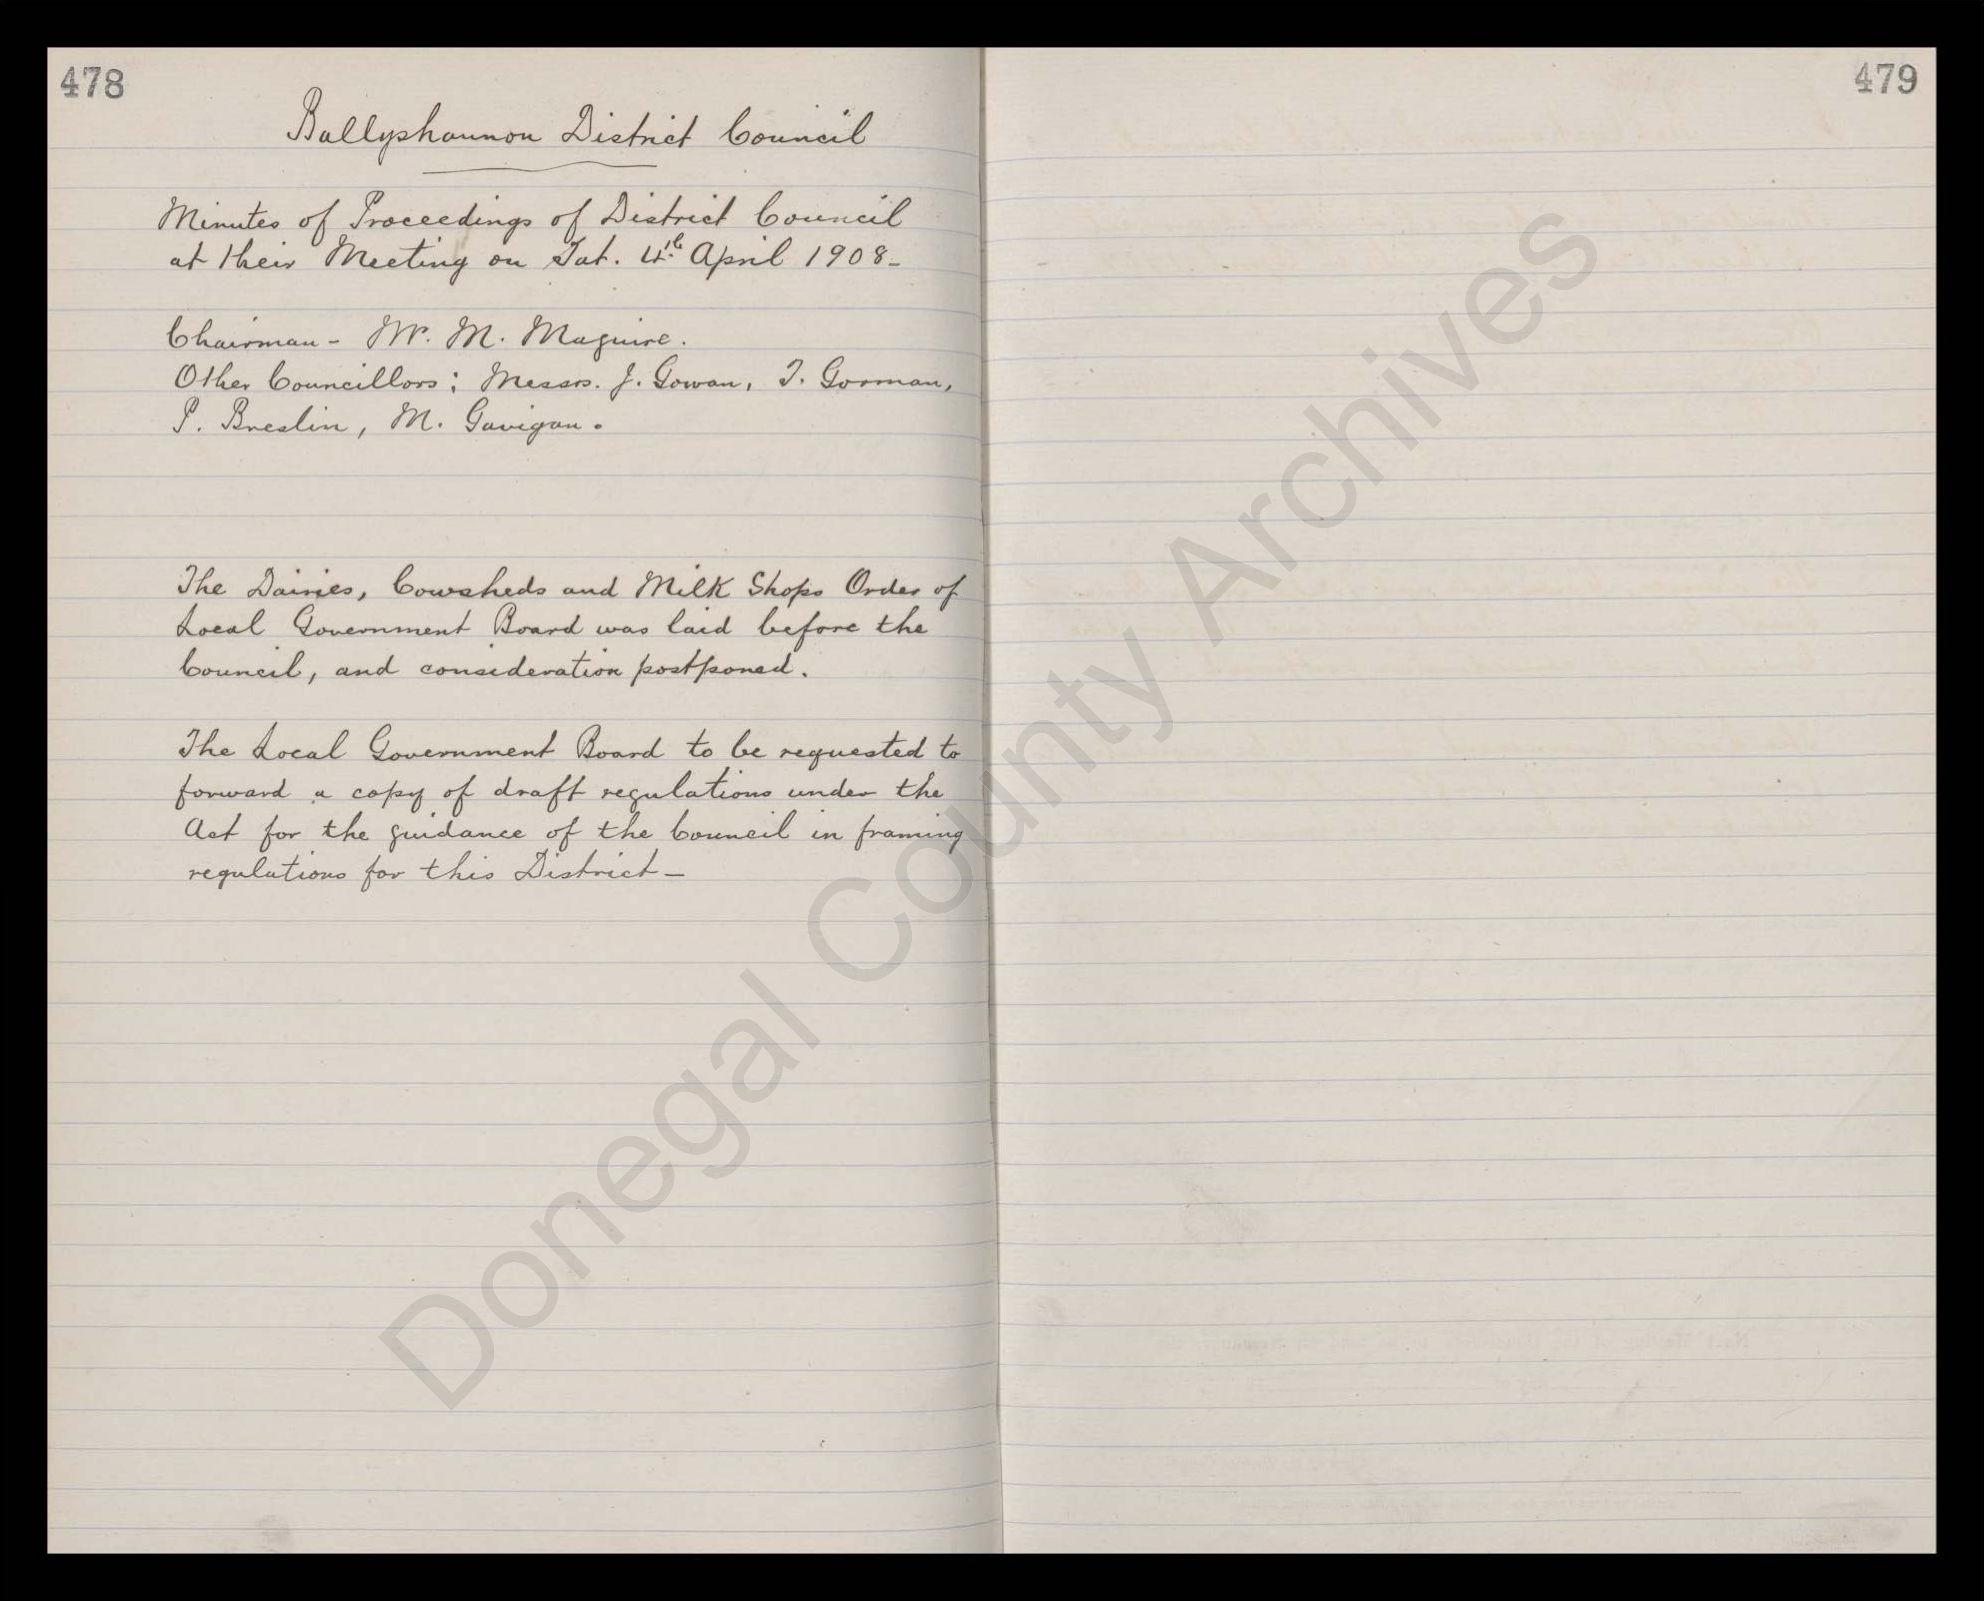 478
Ballyshannon District Council
Minutes of Proceedings of District Council
at their Meeting on Sat. 4th April 1908-
Chairman - Mr. M. Maguire.
Other Councillors; Messrs. J. Gowan, T. Gorman,
P. Breslin, M. Gavigan.
The Dairies, Cowsheds and Milk Shops Order of
Local Government Board was laid before the
Council, and consideration postponed.
The Local Government Board to be requested to
forward a copy of draft regulations under the
Act for the guidance of the Council in framing
regulations for this District-
479
Donegal County Archives